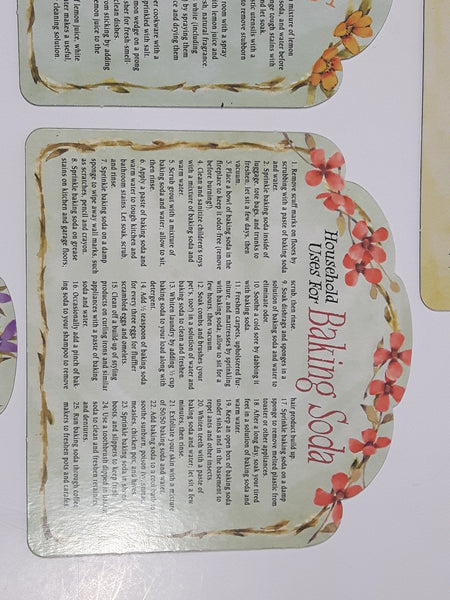 mixture of lemon
soda, and water before
and let soak.
stic utensils with a
nge tough stains with
to remove stubborn
room with a spray
ith lemon juice and
sh, natural fragrance.
white (including
by spraying them
ice and drying them
er cookware with a
sprinkled with salt.
mon wedge on a prong
sher for fresh-smell-
clean dishes.
om sticking by adding
emon juice to the
f lemon juice, white
water makes a useful,
cleaning solution
Household
Uses For
Baking Soda
1. Remove scuff marks on floors by
scrubbing with a paste of baking soda
and water.
2. Sprinkle baking soda inside of
luggage, tote bags, and trunks to
freshen; let sit a few days, then
vacuum.
3. Place a bowl of baking soda in the
fireplace to keep it odor-free (remove
before burning!)
4. Clean and sanitize children's toys
with a mixture of baking soda and
warm water.
5. Scrub grout with a mixture of
baking soda and water; allow to sit,
then rinse.
6. Apply a paste of baking soda and
warm water to tough kitchen and
bathroom stains. Let soak, scrub,
and rinse.
7. Sprinkle baking soda on a damp
sponge to wipe away wall marks, such
as scratches, pencil and crayon.
8. Sprinkle baking soda on grease
stains on kitchen and garage floors;
scrub, then rinse.
9. Soak dishrags and sponges in a
solution of baking soda and water to
eliminate odor.
10. Soothe a cold sore by dabbing it
with baking soda.
11. Freshen carpets, upholstered fur-
niture, and mattresses by sprinkling
with baking soda, allow to sit for a
few hours, then vacuum.
12. Soak combs and brushes (your
pet's, too!) in a solution of water and
baking soda to clean and freshen.
13. Whiten laundry by adding ½ cup
baking soda to your load along with
detergent.
14. Add ½ teaspoon of baking soda
for every three eggs for fluffier
scrambled eggs and omelets.
15. Clean off a build-up of styling
products on curling irons and similar
appliances with a paste of baking
soda and water.
16. Occasionally add a pinch of bak-
ing soda to your shampoo to remove
hair product build up.
17. Sprinkle baking soda on a damp
sponge to remove melted plastic from
toaster or other appliances.
18. After a long day, soak your tired
feet in a solution of baking soda and
warm water.
19. Keep an open box of baking soda
under sinks and in the basement to
repel ants and other insects.
20. Whiten teeth with a paste of
baking soda and water; let sit a few
minutes, then rinse.
21. Exfoliate your skin with a mixture
of 50/50 baking soda and water.
22. Add baking soda to a cool bath to
soothe sunburn, poison ivy/sumac,
measles, chicken pox, and hives.
23. Sprinkle baking soda in shoes,
boots, and slippers to keep fresh.
24. Use a toothbrush dipped in baking
soda to clean and freshen retainers
and dentures.
25. Run baking soda through coffee-
makers to freshen pots and carafes.